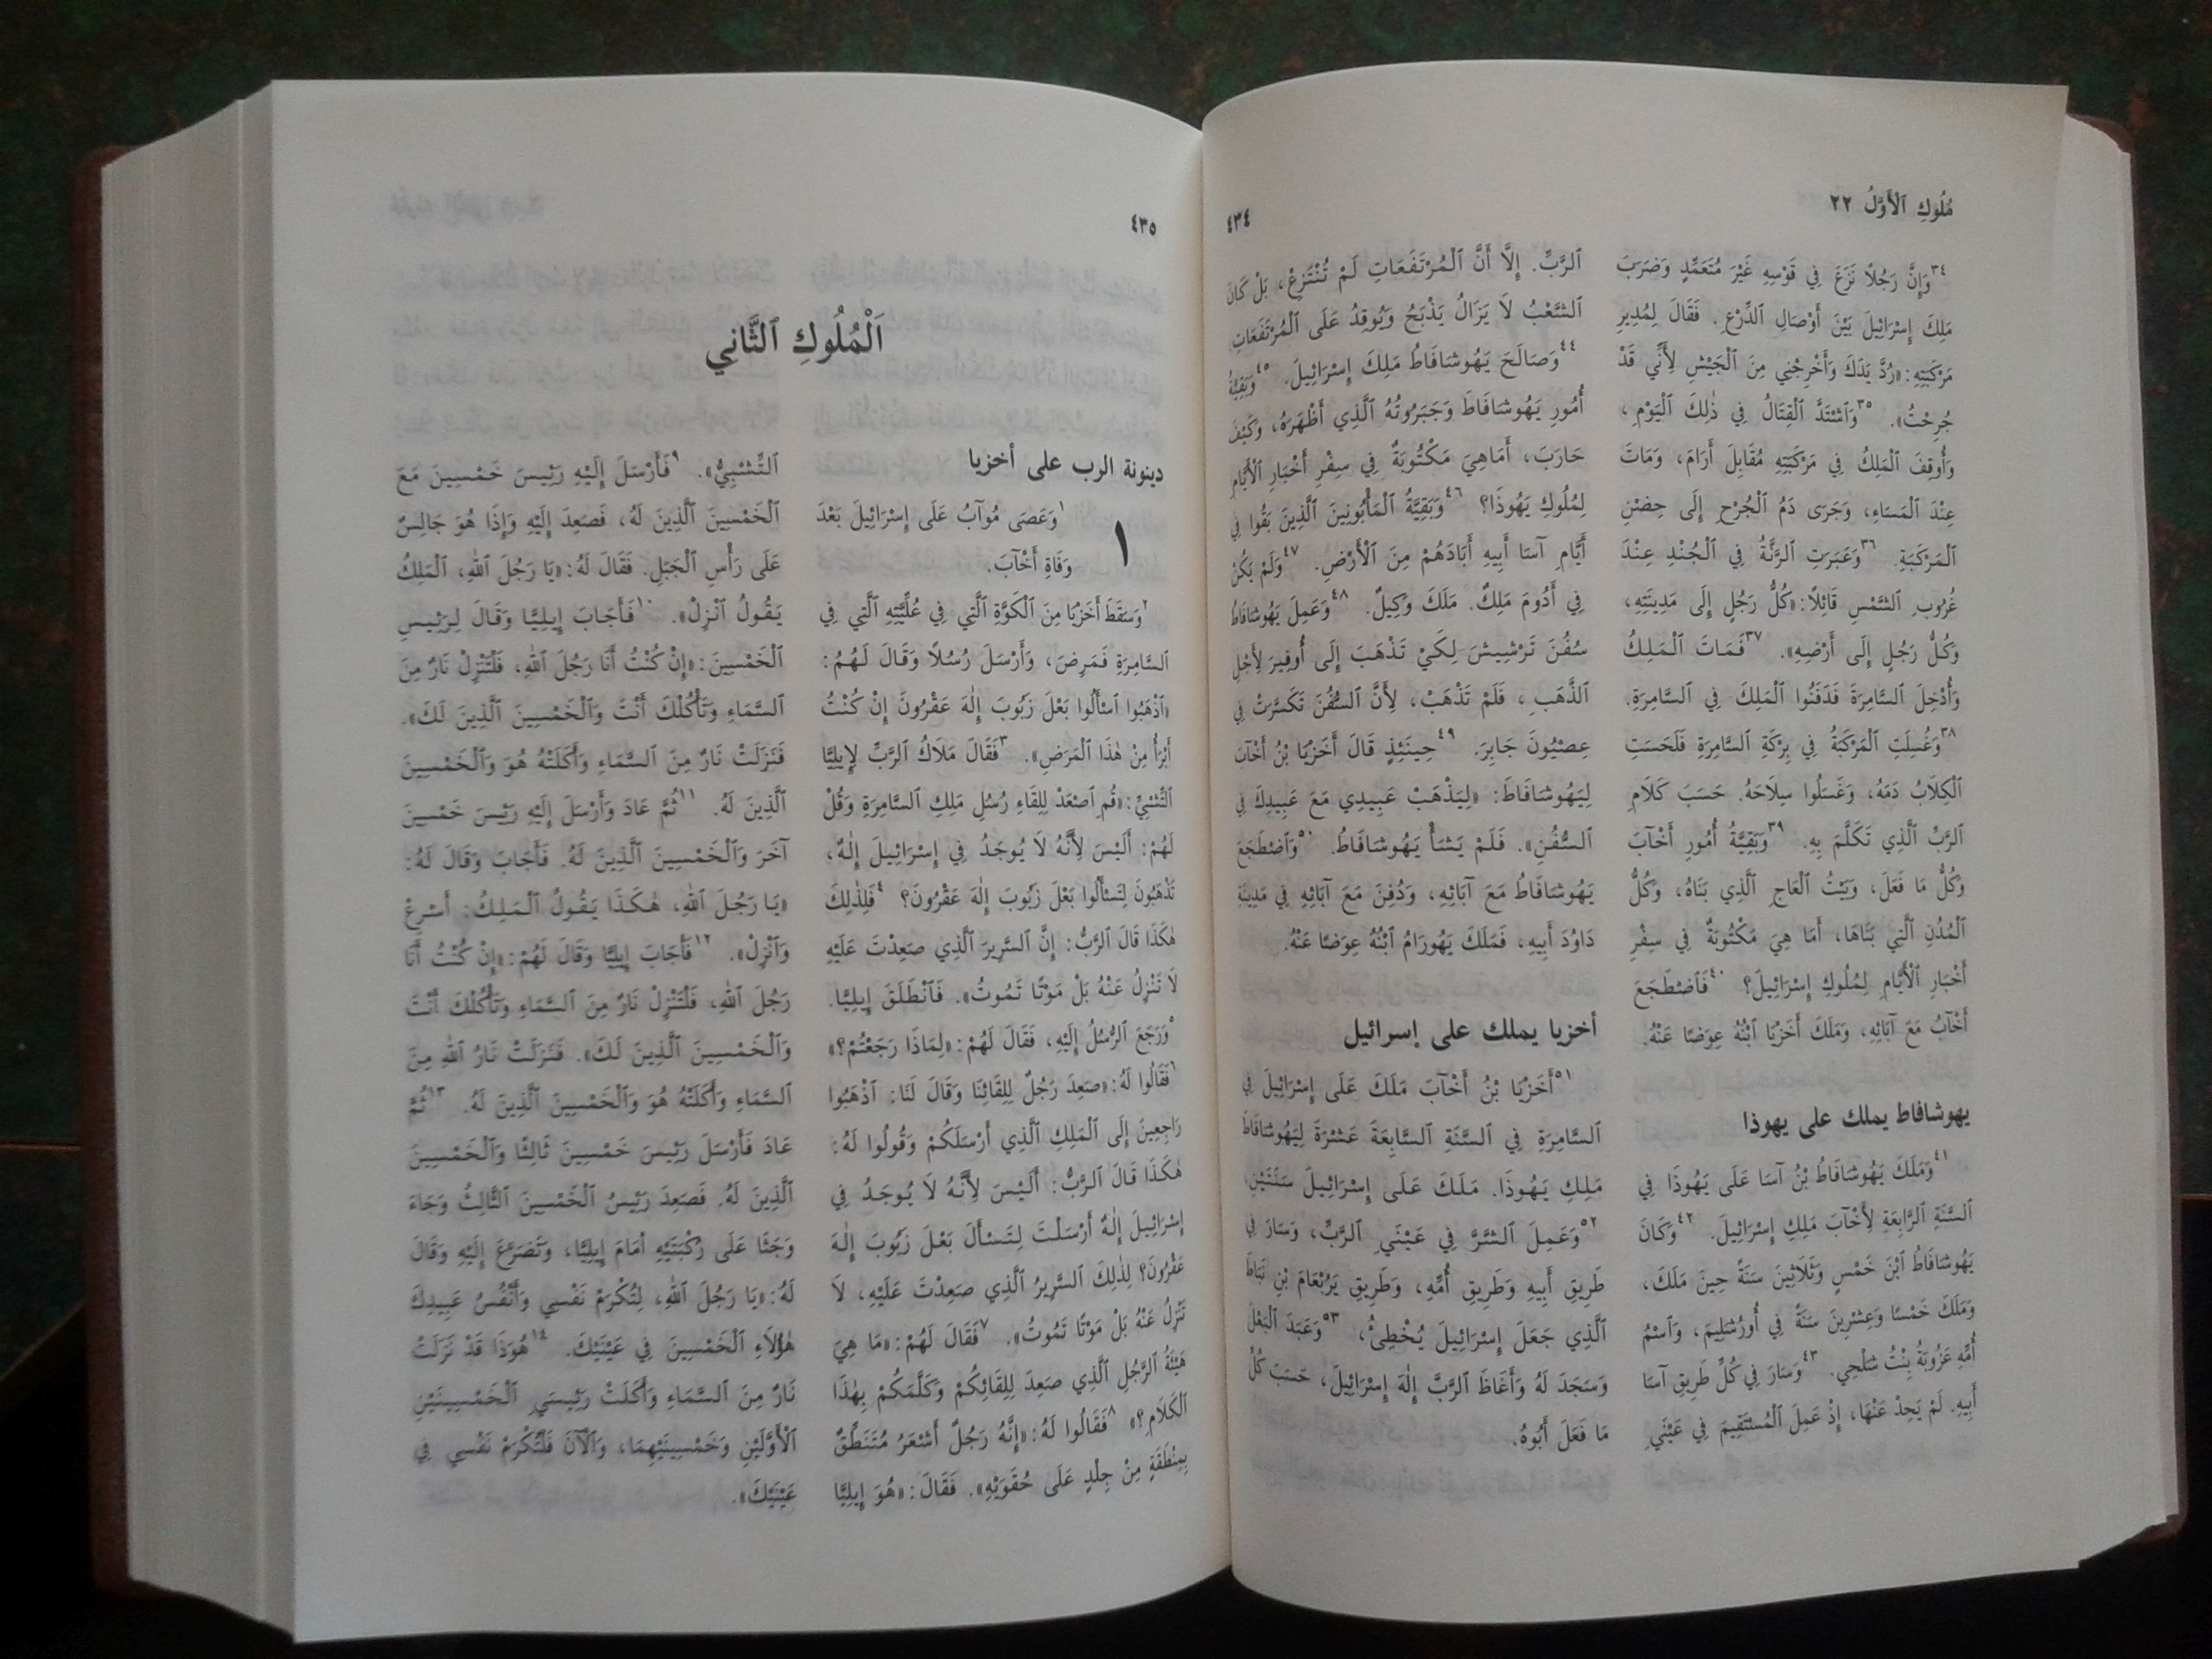 مُلُوكِ ٱلْأَوَّلُ ٢٢
٤٣٤
٣٤وَإِنَّ رَجُلًا نَزَعَ فِي قَوْسِهِ غَيْرَ مُتَعَمِّدٍ وَضَرَبَ
مَلِكَ إِسْرَائِيلَ بَيْنَ أَوْصَالِ ٱلدِّرْعِ. فَقَالَ لِمُدِيرِ
مَرْكَبَتِهِ: «رُدَّ يَدَكَ وَأَخْرِجْنِي مِنَ ٱلْجَيْشِ لِأَنِّي قَدْ
جُرِحْتُ». ٣٥وَٱشْتَدَّ ٱلْقِتَالُ فِي ذٰلِكَ ٱلْيَوْمِ،
وَأُوقِفَ ٱلْمَلِكُ فِي مَرْكَبَتِهِ مُقَابِلَ أَرَامَ، وَمَاتَ
عِنْدَ ٱلْمَسَاءِ، وَجَرَى دَمُ ٱلْجُرْحِ إِلَى حِضْنِ
ٱلْمَرْكَبَةِ. ٣٦وَعَبَرَتِ ٱلرَّنَّةُ فِي ٱلْجُنْدِ عِنْدَ
غُرُوبِ ٱلشَّمْسِ قَائِلًا: «كُلُّ رَجُلٍ إِلَى مَدِينَتِهِ،
وَكُلُّ رَجُلٍ إِلَى أَرْضِهِ». ٣٧فَمَاتَ ٱلْمَلِكُ
وَأُدْخِلَ ٱلسَّامِرَةَ فَدَفَنُوا ٱلْمَلِكَ فِي ٱلسَّامِرَةِ.
٣٨وَغُسِلَتِ ٱلْمَرْكَبَةُ فِي بِرْكَةِ ٱلسَّامِرَةِ فَلَحَسَتِ
ٱلْكِلَابُ دَمَهُ، وَغَسَلُوا سِلَاحَهُ. حَسَبَ كَلَامِ
ٱلرَّبِّ ٱلَّذِي تَكَلَّمَ بِهِ. ٣٩وَبَقِيَّةُ أُمُورِ أَخْآبَ
وَكُلُّ مَا فَعَلَ، وَبَيْتُ ٱلْعَاجِ ٱلَّذِي بَنَاهُ، وَكُلُّ
ٱلْمُدُنِ ٱلَّتِي بَنَاهَا، أَمَا هِيَ مَكْتُوبَةٌ فِي سِفْرِ
أَخْبَارِ ٱلْأَيَّامِ لِمُلُوكِ إِسْرَائِيلَ؟ ٤٠فَٱضْطَجَعَ
أَخْآبُ مَعَ آبَائِهِ، وَمَلَكَ أَخَزْيَا ٱبْنُهُ عِوَضًا عَنْهُ.
يهوشافاط يملك على يهوذا
٤١وَمَلَكَ يَهُوشَافَاطُ بْنُ آسَا عَلَى يَهُوذَا فِي
ٱلسَّنَةِ ٱلرَّابِعَةِ لِأَخْآبَ مَلِكِ إِسْرَائِيلَ. ٤٢وَكَانَ
يَهُوشَافَاطُ ٱبْنَ خَمْسٍ وَثَلَاثِينَ سَنَةً حِينَ مَلَكَ،
وَمَلَكَ خَمْسًا وَعِشْرِينَ سَنَةً فِي أُورُشَلِيمَ، وَٱسْمُ
أُمِّهِ عَزُوبَةُ بِنْتُ شَلْحِي. ٤٣وَسَارَ فِي كُلِّ طَرِيقِ آسَا
أَبِيهِ. لَمْ يَحِدْ عَنْهَا، إِذْ عَمِلَ ٱلْمُسْتَقِيمَ فِي عَيْنَيِ
ٱلرَّبِّ. إِلَّا أَنَّ ٱلْمُرْتَفَعَاتِ لَمْ تُنْتَزَعْ، بَلْ كَانَ
ٱلشَّعْبُ لَا يَزَالُ يَذْبَحُ وَيُوقِدُ عَلَى ٱلْمُرْتَفَعَاتِ.
٤٤وَصَالَحَ يَهُوشَافَاطُ مَلِكَ إِسْرَائِيلَ. ٤٥وَبَقِيَّةُ
أُمُورِ يَهُوشَافَاطَ وَجَبَرُوتُهُ ٱلَّذِي أَظْهَرَهُ، وَكَيْفَ
حَارَبَ، أَمَاهِيَ مَكْتُوبَةٌ فِي سِفْرِ أَخْبَارِ ٱلْأَيَّامِ
لِمُلُوكِ يَهُوذَا؟ ٤٦وَبَقِيَّةُ ٱلْمَأْبُونِينَ ٱلَّذِينَ بَقُوا فِي
أَيَّامِ آسَا أَبِيهِ أَبَادَهُمْ مِنَ ٱلْأَرْضِ. ٤٧وَلَمْ يَكُنْ
فِي أَدُومَ مَلِكٌ. مَلَكَ وَكِيلٌ. ٤٨وَعَمِلَ يَهُوشَافَاطُ
سُفُنَ تَرْشِيشَ لِكَيْ تَذْهَبَ إِلَى أُوفِيرَ لِأَجْلِ
ٱلذَّهَبِ، فَلَمْ تَذْهَبْ، لِأَنَّ ٱلسُّفُنَ تَكَسَّرَتْ فِي
عِصْيُونَ جَابِرَ. ٤٩حِينَئِذٍ قَالَ أَخَزْيَا بْنُ أَخْآبَ
لِيَهُوشَافَاطَ: «لِيَذْهَبْ عَبِيدِي مَعَ عَبِيدِكَ فِي
ٱلسُّفُنِ». فَلَمْ يَشَأْ يَهُوشَافَاطُ. ٥٠وَٱضْطَجَعَ
يَهُوشَافَاطُ مَعَ آبَائِهِ، وَدُفِنَ مَعَ آبَائِهِ فِي مَدِينَةِ
دَاوُدَ أَبِيهِ، فَمَلَكَ يَهُورَامُ ٱبْنُهُ عِوَضًا عَنْهُ.
أخزيا يملك على إسرائيل
٥١أَخَزْيَا بْنُ أَخْآبَ مَلَكَ عَلَى إِسْرَائِيلَ فِي
ٱلسَّامِرَةِ فِي ٱلسَّنَةِ ٱلسَّابِعَةَ عَشْرَةَ لِيَهُوشَافَاطَ
مَلِكِ يَهُوذَا. مَلَكَ عَلَى إِسْرَائِيلَ سَنَتَيْنِ.
٥٢وَعَمِلَ ٱلشَّرَّ فِي عَيْنَيِ ٱلرَّبِّ، وَسَارَ فِي
طَرِيقِ أَبِيهِ وَطَرِيقِ أُمِّهِ، وَطَرِيقِ يَرُبْعَامَ بْنِ نَبَاطَ
ٱلَّذِي جَعَلَ إِسْرَائِيلَ يُخْطِئُ، ٥٣وَعَبَدَ ٱلْبَعْلَ
وَسَجَدَ لَهُ وَأَغَاظَ ٱلرَّبَّ إِلٰهَ إِسْرَائِيلَ، حَسَبَ كُلِّ
مَا فَعَلَ أَبُوهُ.
٤٣٥
اَلْمُلُوكِ ٱلثَّانِي
دينونة الرب على أخزيا
١
١وَعَصَى مُوآبُ عَلَى إِسْرَائِيلَ بَعْدَ
وَفَاةِ أَخْآبَ.
٢وَسَقَطَ أَخَزْيَا مِنَ ٱلْكَوَّةِ ٱلَّتِي فِي عُلِّيَّتِهِ ٱلَّتِي فِي
ٱلسَّامِرَةِ فَمَرِضَ، وَأَرْسَلَ رُسُلًا وَقَالَ لَهُمُ:
«ٱذْهَبُوا ٱسْأَلُوا بَعْلَ زَبُوبَ إِلٰهَ عَقْرُونَ إِنْ كُنْتُ
أَبْرَأُ مِنْ هٰذَا ٱلْمَرَضِ». ٣فَقَالَ مَلَاكُ ٱلرَّبِّ لِإِيلِيَّا
ٱلتِّشْبِيِّ: «قُمِ ٱصْعَدْ لِلِقَاءِ رُسُلِ مَلِكِ ٱلسَّامِرَةِ وَقُلْ
لَهُمْ: أَلَيْسَ لِأَنَّهُ لَا يُوجَدُ فِي إِسْرَائِيلَ إِلٰهٌ،
تَذْهَبُونَ لِتَسْأَلُوا بَعْلَ زَبُوبَ إِلٰهَ عَقْرُونَ؟ ٤فَلِذٰلِكَ
هٰكَذَا قَالَ ٱلرَّبُّ: إِنَّ ٱلسَّرِيرَ ٱلَّذِي صَعِدْتَ عَلَيْهِ
لَا تَنْزِلُ عَنْهُ بَلْ مَوْتًا تَمُوتُ». فَٱنْطَلَقَ إِيلِيَّا.
٥وَرَجَعَ ٱلرُّسُلُ إِلَيْهِ، فَقَالَ لَهُمْ: «لِمَاذَا رَجَعْتُمْ؟»
٦فَقَالُوا لَهُ: «صَعِدَ رَجُلٌ لِلِقَائِنَا وَقَالَ لَنَا: ٱذْهَبُوا
رَاجِعِينَ إِلَى ٱلْمَلِكِ ٱلَّذِي أَرْسَلَكُمْ وَقُولُوا لَهُ:
هٰكَذَا قَالَ ٱلرَّبُّ: أَلَيْسَ لِأَنَّهُ لَا يُوجَدُ فِي
إِسْرَائِيلَ إِلٰهٌ أَرْسَلْتَ لِتَسْأَلَ بَعْلَ زَبُوبَ إِلٰهَ
عَقْرُونَ؟ لِذٰلِكَ ٱلسَّرِيرُ ٱلَّذِي صَعِدْتَ عَلَيْهِ، لَا
تَنْزِلُ عَنْهُ بَلْ مَوْتًا تَمُوتُ». ٧فَقَالَ لَهُمْ: «مَا هِيَ
هَيْئَةُ ٱلرَّجُلِ ٱلَّذِي صَعِدَ لِلِقَائِكُمْ وَكَلَّمَكُمْ بِهٰذَا
ٱلْكَلَامِ؟» ٨فَقَالُوا لَهُ: «إِنَّهُ رَجُلٌ أَشْعَرُ مُتَنَطِّقٌ
بِمِنْطَقَةٍ مِنْ جِلْدٍ عَلَى حُقَوَيْهِ». فَقَالَ: «هُوَ إِيلِيَّا
ٱلتِّشْبِيُّ». ٩فَأَرْسَلَ إِلَيْهِ رَئِيسَ خَمْسِينَ مَعَ
ٱلْخَمْسِينَ ٱلَّذِينَ لَهُ، فَصَعِدَ إِلَيْهِ وَإِذَا هُوَ جَالِسٌ
عَلَى رَأْسِ ٱلْجَبَلِ. فَقَالَ لَهُ: «يَا رَجُلَ ٱللهِ، ٱلْمَلِكُ
يَقُولُ ٱنْزِلْ». ١٠فَأَجَابَ إِيلِيَّا وَقَالَ لِرَئِيسِ
ٱلْخَمْسِينَ: «إِنْ كُنْتُ أَنَا رَجُلَ ٱللهِ، فَلْتَنْزِلْ نَارٌ مِنَ
ٱلسَّمَاءِ وَتَأْكُلْكَ أَنْتَ وَٱلْخَمْسِينَ ٱلَّذِينَ لَكَ».
فَنَزَلَتْ نَارٌ مِنَ ٱلسَّمَاءِ وَأَكَلَتْهُ هُوَ وَٱلْخَمْسِينَ
ٱلَّذِينَ لَهُ. ١١ثُمَّ عَادَ وَأَرْسَلَ إِلَيْهِ رَئِيسَ خَمْسِينَ
آخَرَ وَٱلْخَمْسِينَ ٱلَّذِينَ لَهُ. فَأَجَابَ وَقَالَ لَهُ:
«يَا رَجُلَ ٱللهِ، هٰكَذَا يَقُولُ ٱلْمَلِكُ: أَسْرِعْ
وَٱنْزِلْ». ١٢فَأَجَابَ إِيلِيَّا وَقَالَ لَهُمْ: «إِنْ كُنْتُ أَنَا
رَجُلَ ٱللهِ، فَلْتَنْزِلْ نَارٌ مِنَ ٱلسَّمَاءِ وَتَأْكُلْكَ أَنْتَ
وَٱلْخَمْسِينَ ٱلَّذِينَ لَكَ». فَنَزَلَتْ نَارُ ٱللهِ مِنَ
ٱلسَّمَاءِ وَأَكَلَتْهُ هُوَ وَٱلْخَمْسِينَ ٱلَّذِينَ لَهُ. ١٣ثُمَّ
عَادَ فَأَرْسَلَ رَئِيسَ خَمْسِينَ ثَالِثًا وَٱلْخَمْسِينَ
ٱلَّذِينَ لَهُ. فَصَعِدَ رَئِيسُ ٱلْخَمْسِينَ ٱلثَّالِثُ وَجَاءَ
وَجَثَا عَلَى رُكْبَتَيْهِ أَمَامَ إِيلِيَّا، وَتَضَرَّعَ إِلَيْهِ وَقَالَ
لَهُ: «يَا رَجُلَ ٱللهِ، لِتُكْرَمْ نَفْسِي وَأَنْفُسُ عَبِيدِكَ
هٰؤُلَاءِ ٱلْخَمْسِينَ فِي عَيْنَيْكَ. ١٤هُوَذَا قَدْ نَزَلَتْ
نَارٌ مِنَ ٱلسَّمَاءِ وَأَكَلَتْ رَئِيسَيِ ٱلْخَمْسِينَيْنِ
ٱلْأَوَّلَيْنِ وَخَمْسِينَيْهِمَا، وَٱلْآنَ فَلْتُكْرَمْ نَفْسِي فِي
عَيْنَيْكَ».